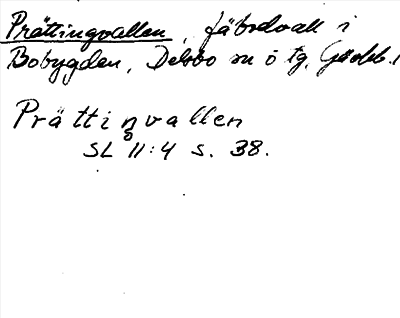 Prättingvallen, fäbodvall i
Bobygden, Delsbo sn ö tg, Gävleb. l
Prättingvallen
SL 11:4 s. 38.